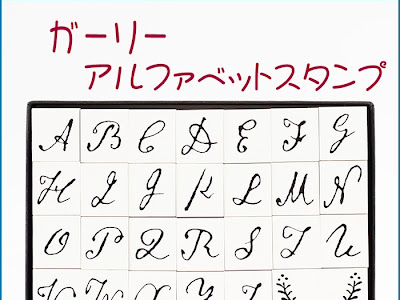 ガーリー
アルファベットスタンプ
A B C D E F G
H I J K L M N
O P Q R S T U
V W X Y Z